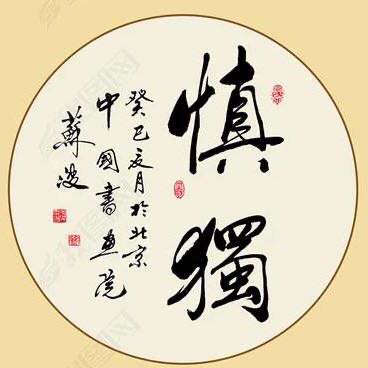 慎獨
癸巳夏月於北京
中國書画院
蘇